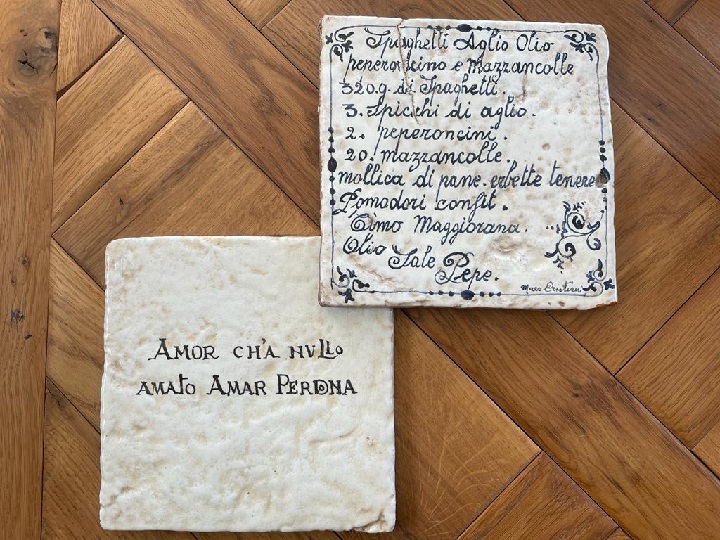 Spaghetti Aglio Olio
peperoncino e Mazzancolle
320.g. di Spaghetti.
3. Spicchi di aglio.
2. peperoncini.
20. mazzancolle.
mollica di pane. erbette tenere
Pomodori confit.
Timo Maggiorana.
Olio Sale
Pepe.
AMOR CH'A NVLLO
AMATO AMAR PERDONA